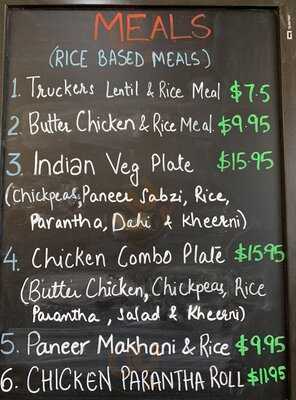 MEALS
(RICE BASED MEALS)
1. Truckers Lentil & Rice Meal $7.5
2. Butter Chicken & Rice Meal $9.95
3. Indian Veg Plate $15.95
(Chickpeas, Paneer Sabzi, Rice,
Parantha, Dahi & Kheerni)
4. Chicken Combo Plate $15.95
(Butter Chicken, Chickpeas, Rice
Parantha, Salad & Kheerni)
5. Paneer Makhani & Rice $9.95
6. CHICKEN PARANTHA ROLL $11.95